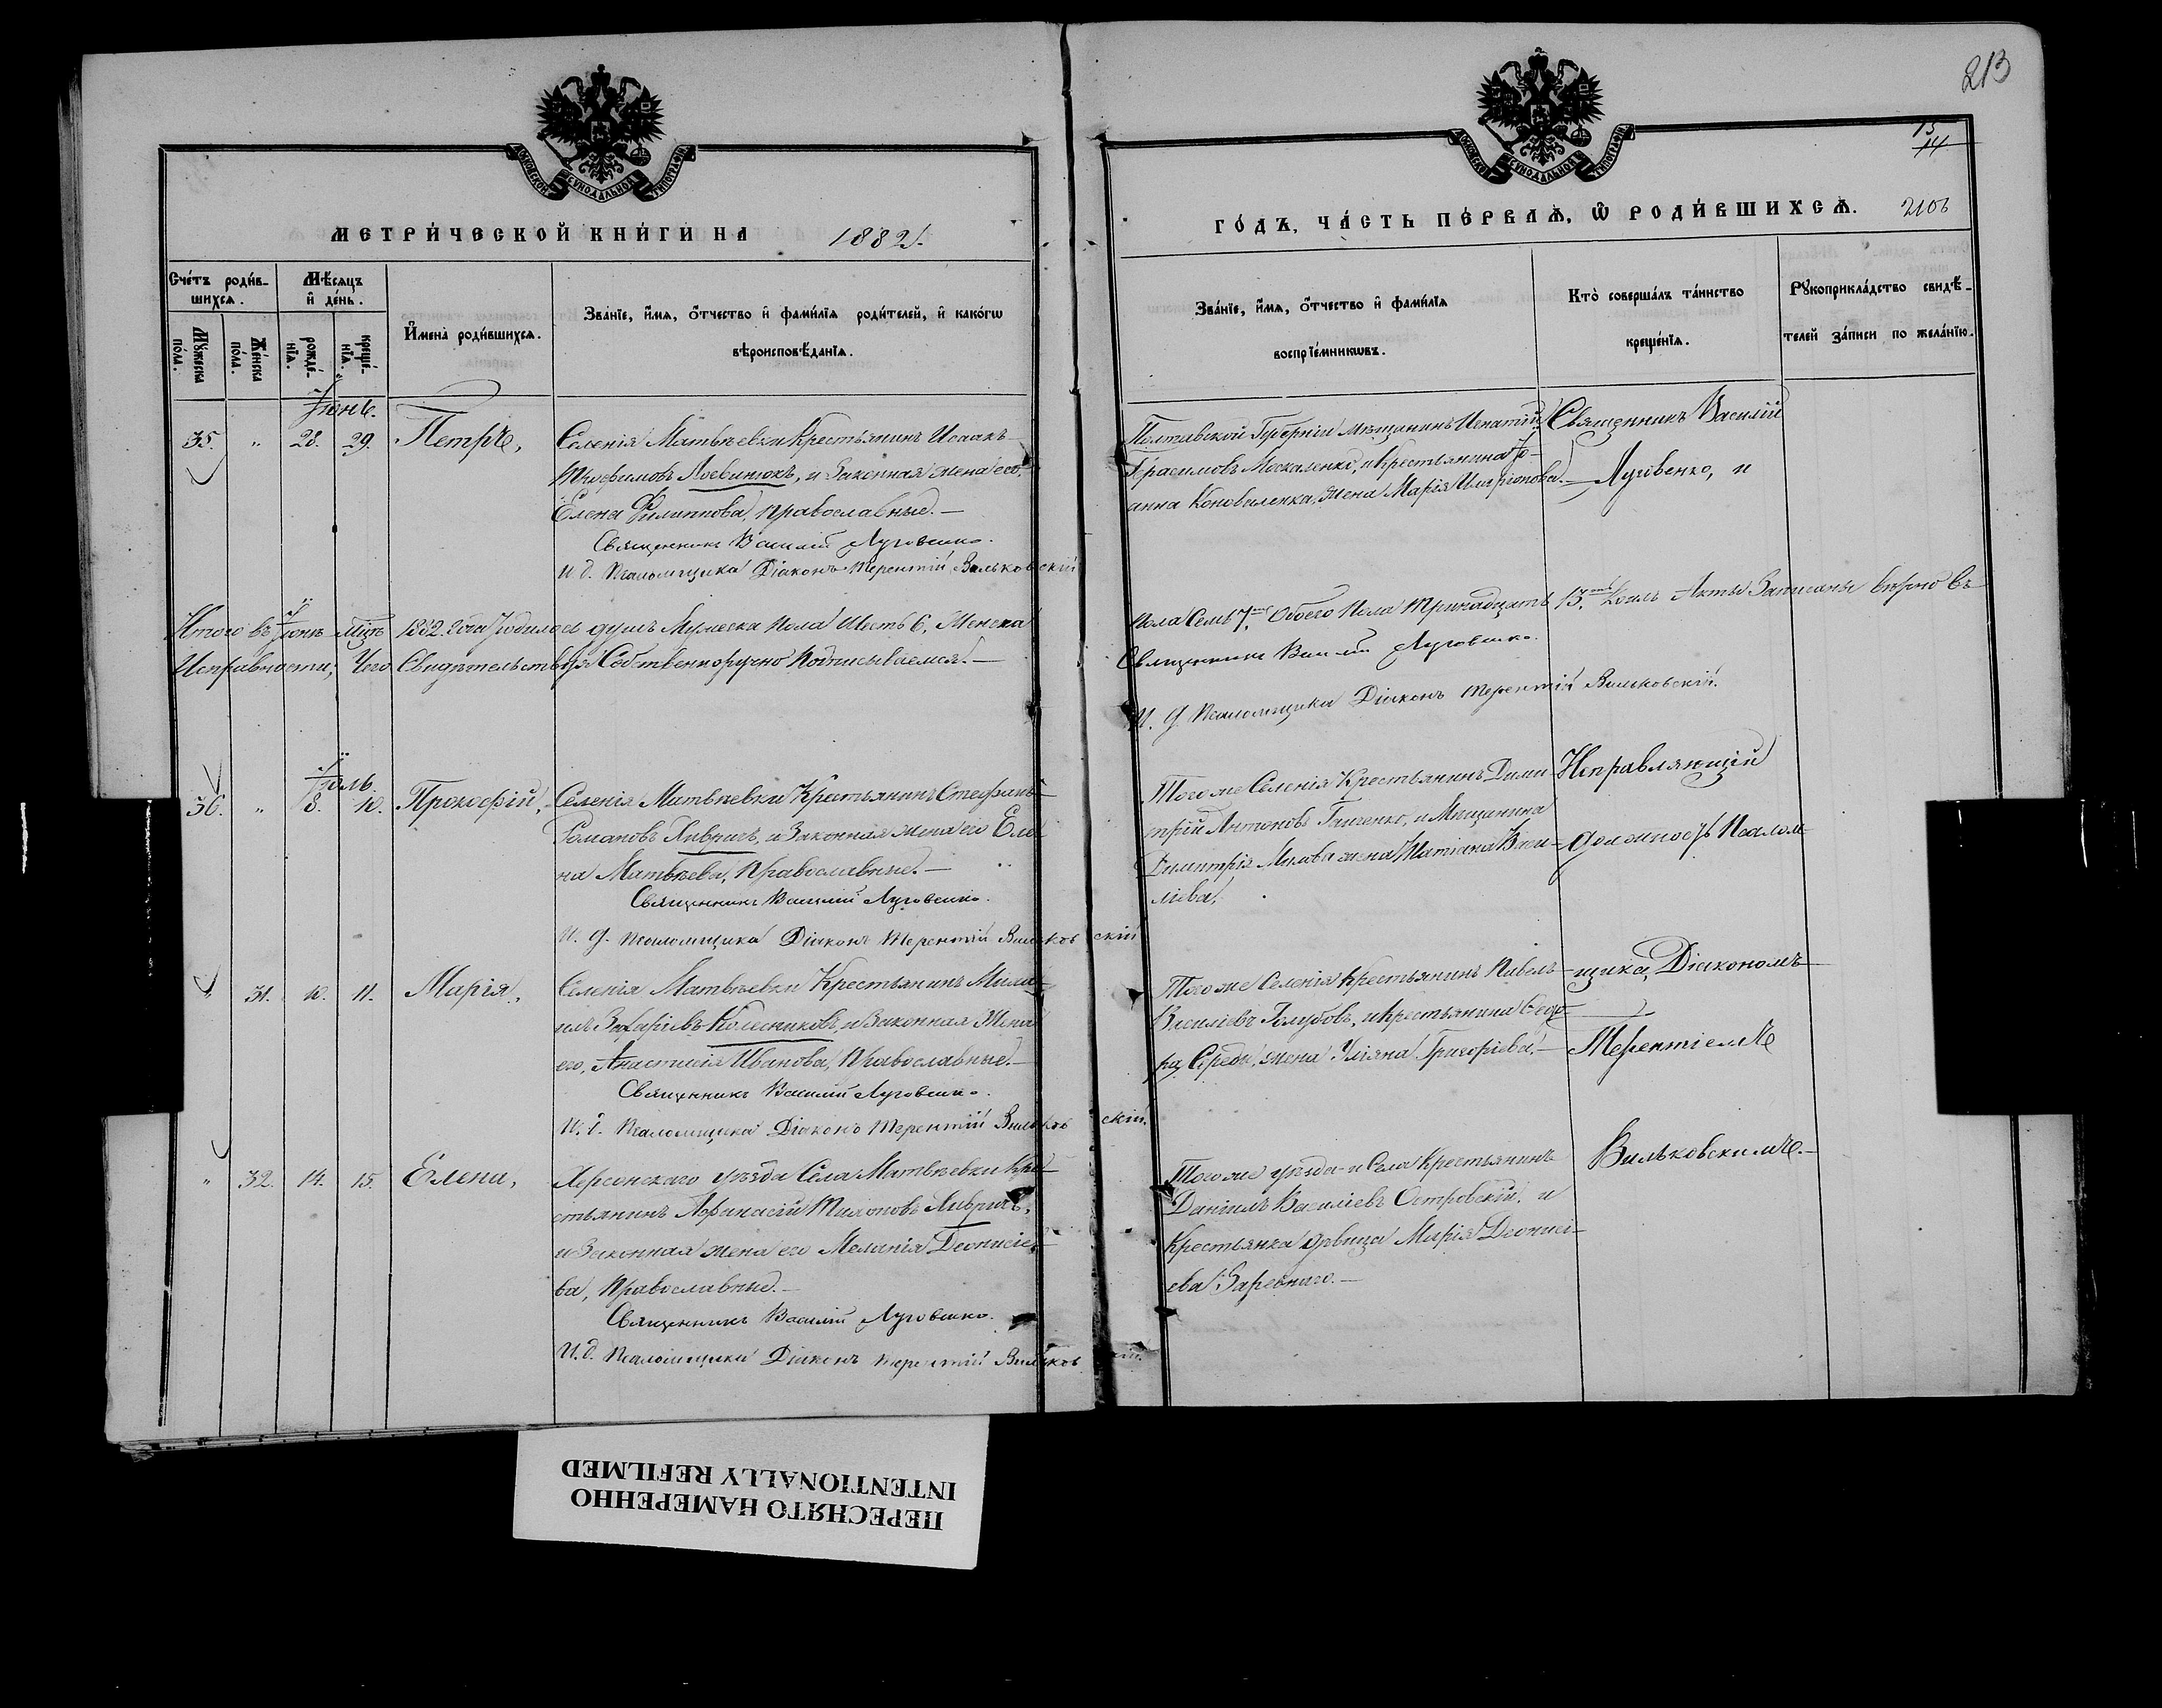 213
15
14
2106
МОСКОВСКОЙ СѴНОДАЛЬНОЙ ТИПОГРАФІИ
МОСКОВСКОЙ СѴНОДАЛЬНОЙ ТИПОГРАФІИ
МЕТРИ́ЧЕСКОЙ КНИ́ГИ НА 1882
ГО́ДЪ, ЧА́СТЬ ПЕ́РВАѦ, Ѿ РОДИ́ВШИХСѦ.
Сче́тъ роди́в-
шихсѧ.
Мѣ́сѧцъ
и҆ де́нь.
Мꙋ́жеска по́ла.
Же́нска по́ла.
рожде́-нїѧ.
креще́-нїѧ.
И҆мена̀ роди́вшихсѧ.
Зва́нїе, и҆́мѧ, ѻ҆́тчество и҆ фами́лїѧ роди́телей, и҆ како́гѡ
вѣроисповѣ́данїѧ.
Зва́нїе, и҆́мѧ, ѻ҆́тчество и҆ фами́лїѧ
воспрїе́мникѡвъ.
Кто̀ соверша́лъ та́инство
креще́нїѧ.
Рꙋкоприкла́дство свидѣ́-
телей за́писи по жела́нїю.
Іюнь.
35. " 28. 29. Петръ,
Селенія Матвѣевки Крестьянинъ Исаакъ
Трофимовъ Логвинюкъ, и Законная жена его
Елена Филиппова, Православные.—
Священникъ Василій Луговенко.
И. д. Псаломщика Діаконъ Терентій Вильковскій
Полтавской Губерніи мѣщанинъ Игнатій
Герасимовъ Москаленко, и крестьянина Іо-
анна Коноваленка, жена Марія Иларіонова.—
Священникъ Василій
Луговенко, и
Итого въ Іюнѣ мѣцѣ 1882 года Родилось душъ Мужеска пола Шесть 6, Женска
пола Семь 7, Обоего Пола Тринадцать 13. Коихъ Акты Записаны вѣрно въ
Исправности, Чего Свидѣтельствуя Собственноручно Подписываемся.—
Священникъ Василій Луговенко.
И. д. Псаломщика Діаконъ Терентій Вильковскій.
Іюль.
36. " 8. 10. Прокофій,
Селенія Матвѣевки Крестьянинъ Стефанъ
Романовъ Хивричъ, и Законная жена его Еле-
на Матвѣева, Православные.—
Священникъ Василій Луговенко.
И. д. Псаломщика Діаконъ Терентій Вильковскій
Того же Селенія Крестьянинъ Дими-
трій Антоновъ Ганченко, и Мѣщанина
Димитрія жена Татіана Васи-
лиева.
Исправляющій
Должность Псалом-
" 31. 10. 11. Марія,
Селенія Матвѣевки Крестьянинъ Миха-
илъ Захаріевъ Колесниковъ, и Законная Жена
его, Анастасія Иванова, Православные.—
Священникъ Василій Луговенко.
И. д. Псаломщика Діаконъ Терентій Вильковскій.
Того же Селенія Крестьянинъ Павелъ
Василіевъ Голубовъ, и крестьянина Сидо-
ра жена Уліяна Григоріева.—
щика, Діакономъ
Терентіемъ
" 32. 14. 15. Елена,
Херсонскаго уѣзда Села Матвѣевки Кре-
стьянинъ Афанасій Тихоновъ Хивричъ,
и Законная жена его Меланія Деонисіе-
ва, Православные.—
Священникъ Василій Луговенко.
И. д. Псаломщика Діаконъ Терентій Вильковскій.
Того же уѣзда и Села Крестьянинъ
Даніилъ Василіевъ Островскій, и
Крестьянка дѣвица Марія Деонисі-
ева
Вильковскимъ.—
ПЕРЕСНЯТО НАМЕРЕННО
INTENTIONALLY REFILMED